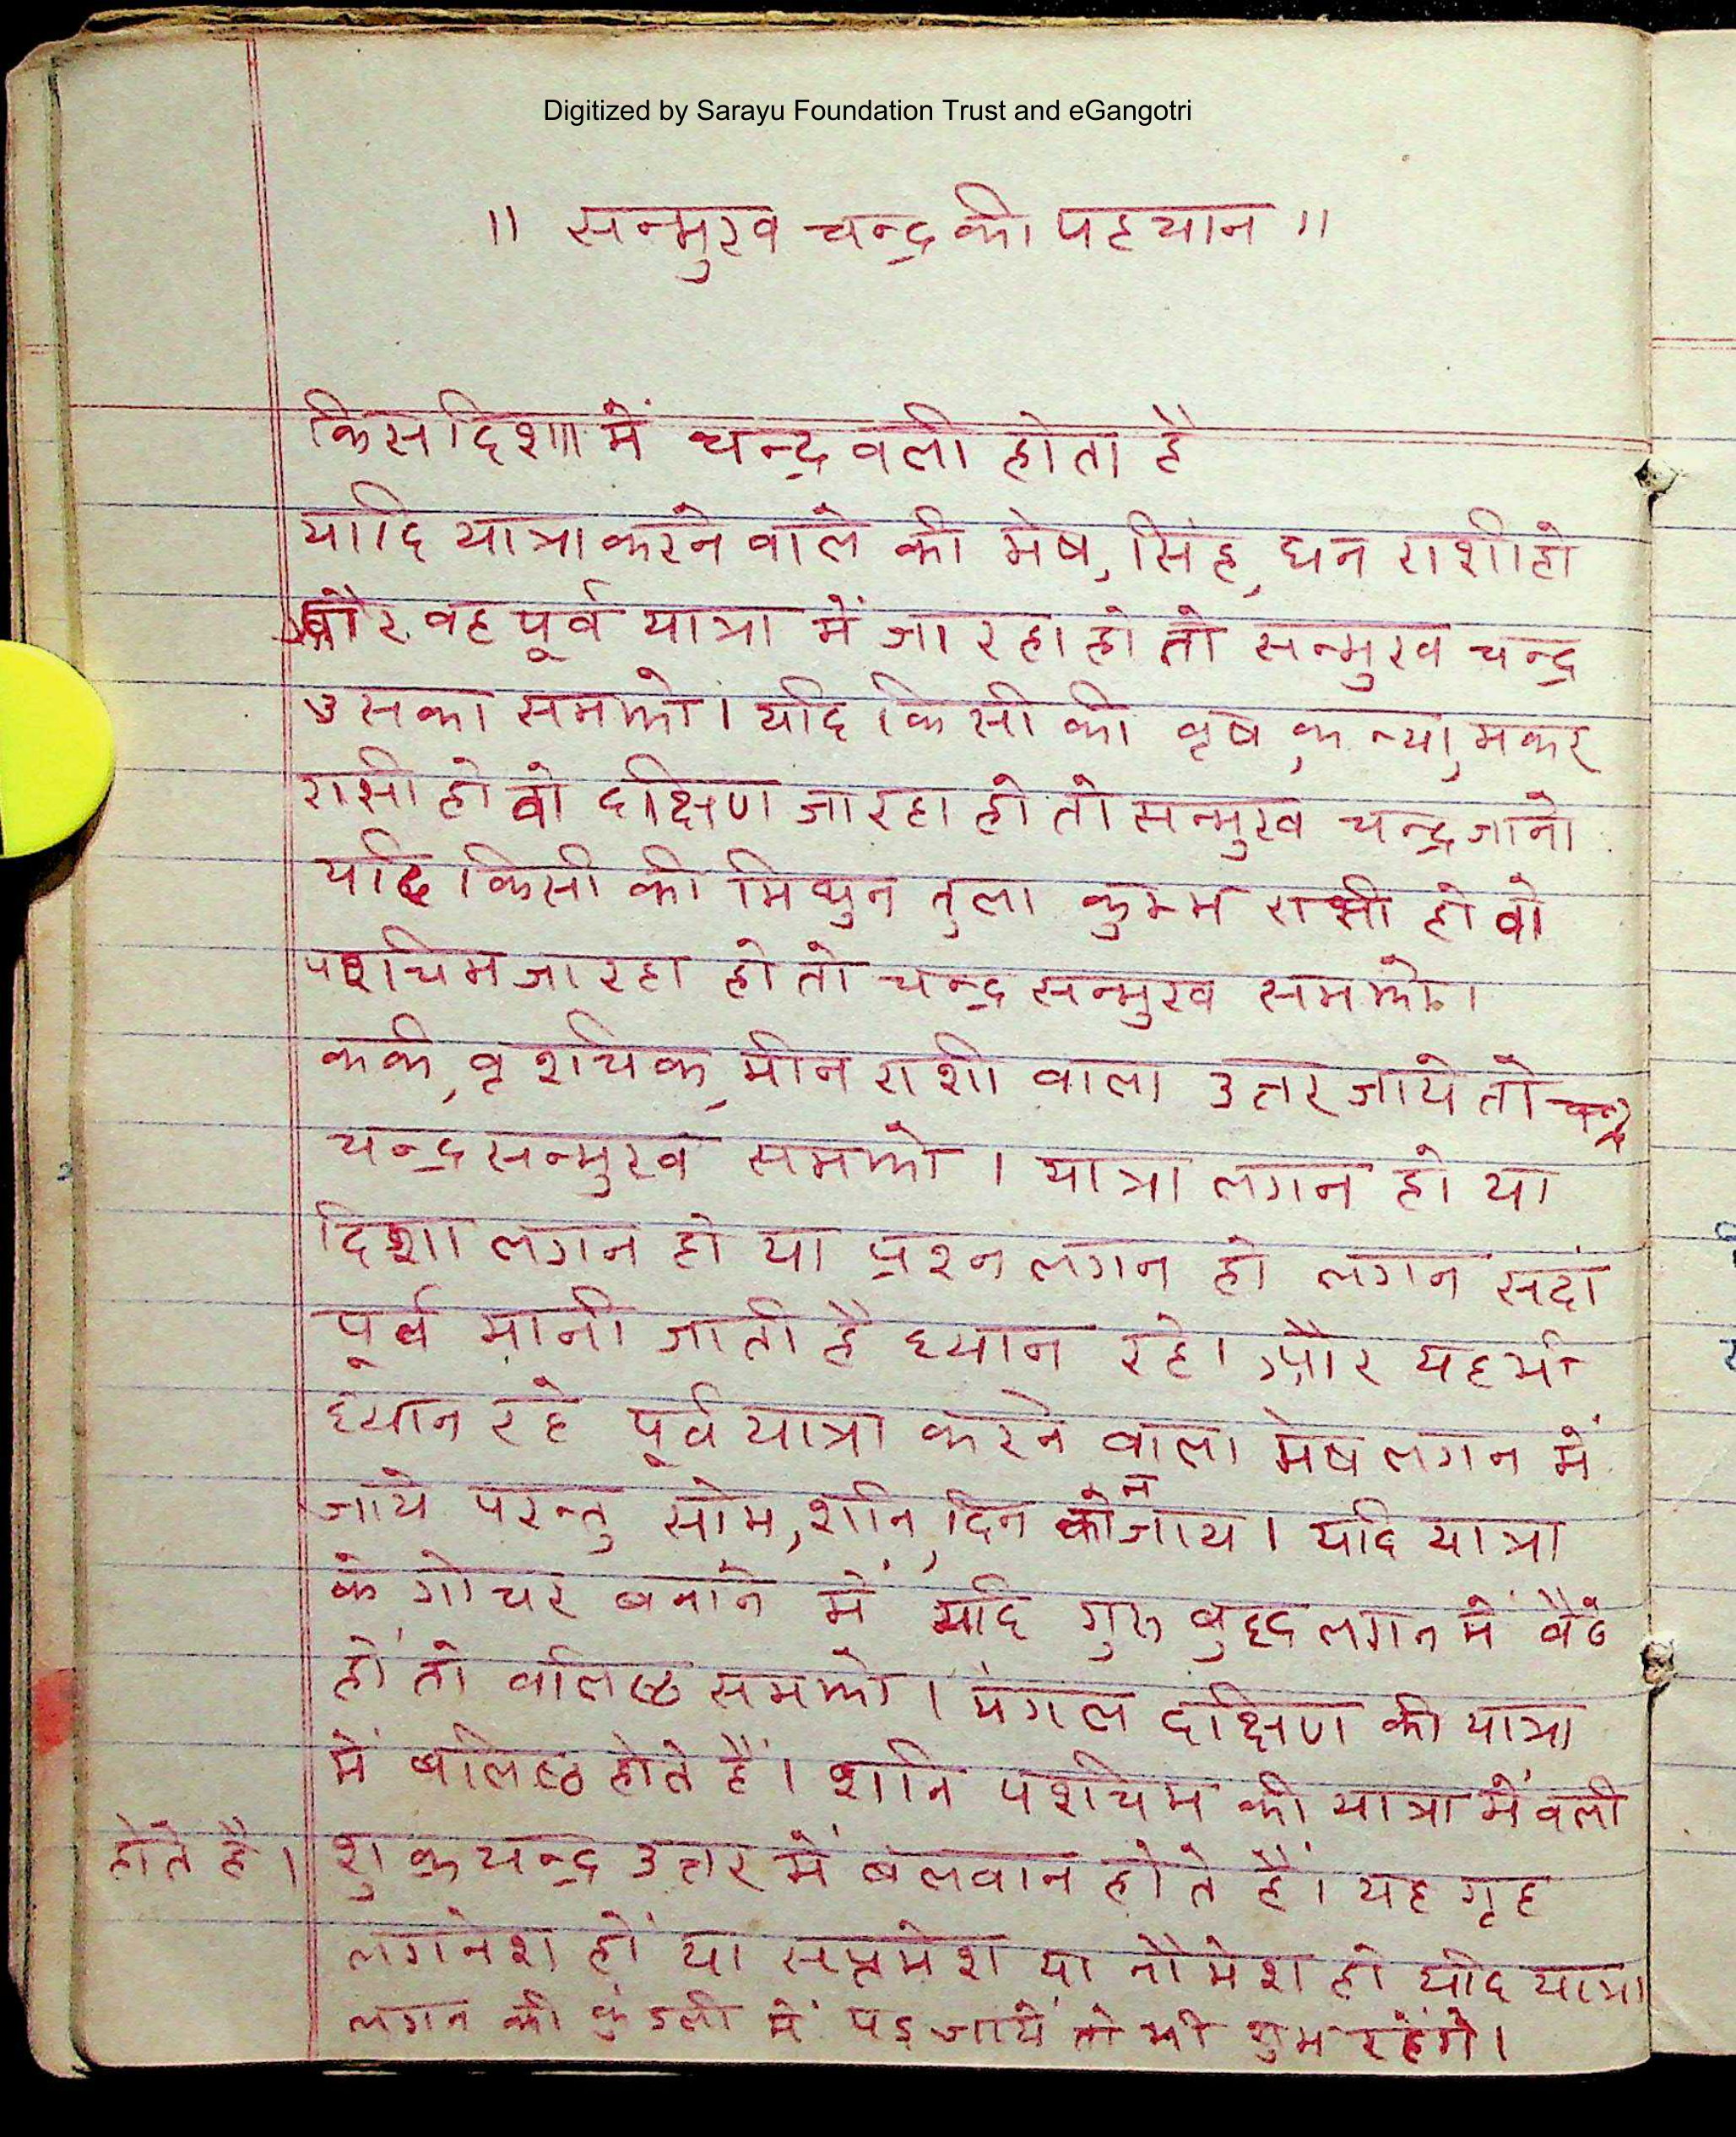 Digitized by Sarayu Foundation Trust and eGangotri
॥ सन्मुख चन्द्र की पहचान ॥
किस दिशा में चन्द्र वली होता है
यदि यात्रा करने वाले की मेष, सिंह, धन राशी हो
और वह पूर्व यात्रा में जा रहा हो तो सन्मुख चन्द्र
उसका समझो। यदि किसी की वृष, कन्या, मकर
रासी हो वो दक्षिण जा रहा हो तो सन्मुख चन्द्र जानो
यदि किसी की मिथुन तुला कुम्भ राशी हो वो
पश्चिम जा रहा हो तो चन्द्र सन्मुख समझो।
कर्क, वृश्चिक, मीन राशी वाला उत्तर जाये तो
चन्द्र सन्मुख समझो। यात्रा लगन हो या
दिशा लगन हो या प्रश्न लगन हो लगन सदां
पूर्व मानी जाती है ध्यान रहे। और यह भी
ध्यान रहे पूर्व यात्रा करने वाला मेष लगन में
जाये परन्तु सोम, शनि, दिन को न जाय। यदि यात्रा
के गोचर बनाने में यदि गुरु बुद्ध लगन में बैठे
हों तो वलिष्ठ समझो। मंगल दक्षिण की यात्रा
में बलिष्ठ होते हैं। शनि पश्चिम की यात्रा में वली
होते है। शुक्र चन्द्र उत्तर में बलवान होते हैं। यह गृह
लगनेश हों या सप्तमेश या नौमेश हो यदि यात्रा
लगन की कुंडली में पड़ जायें तो भी शुभ रहेंगे।